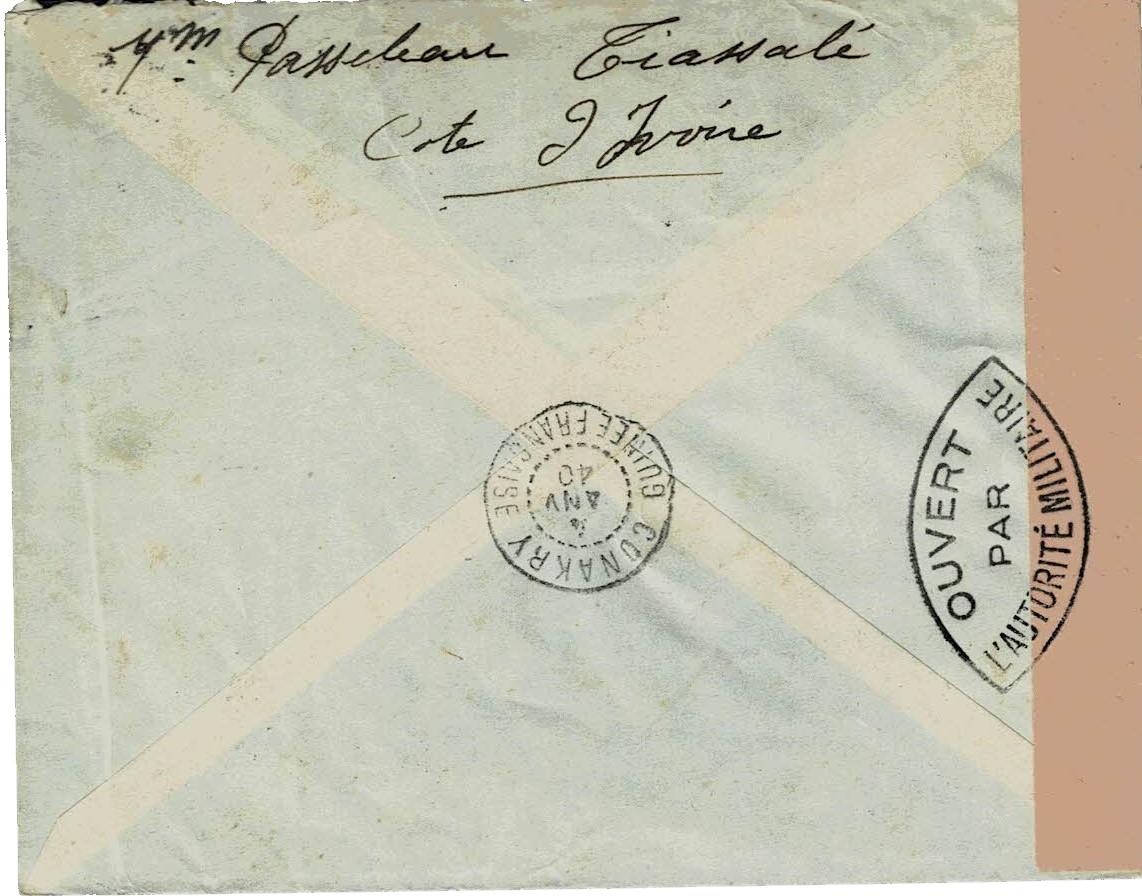 Mm Passebeau Tiassalé
Cote D Ivoire
CONAKRY
GUINÉE FRANÇAISE
ANV
40
OUVERT
PAR
L'AUTORITÉ MILITAIRE